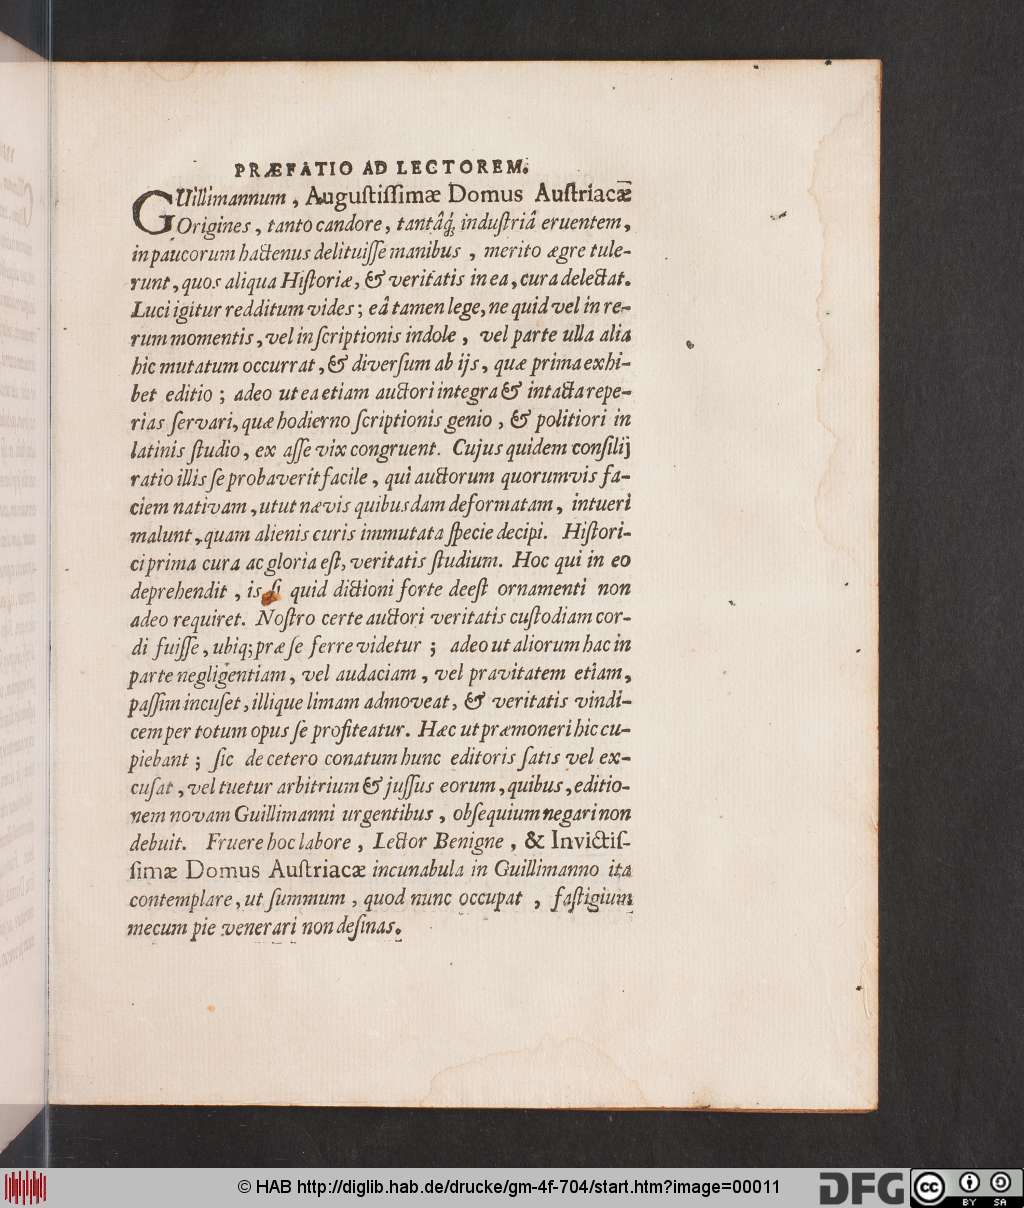 PRÆFATIO AD LECTOREM.
GUillimannum, Auguſtiſſimæ Domus Auſtriacæ
Origines, tanto candore, tantâq́; induſtriâ eruentem,
in paucorum hactenus delituiſſe manibus, merito ægre tule-
runt, quos aliqua Hiſtoriæ, & veritatis in ea, cura delectat.
Luci igitur redditum vides; eâ tamen lege, ne quid vel in re-
rum momentis, vel inſcriptionis indole, vel parte ulla alia
hic mutatum occurrat, & diverſum ab ijs, quæ prima exhi-
bet editio; adeo ut ea etiam auctori integra & intacta repe-
rias ſervari, quæ hodierno ſcriptionis genio, & politiori in
latinis ſtudio, ex aſſe vix congruent. Cujus quidem conſilij
ratio illis ſe probaverit facile, qui auctorum quorumvis fa-
ciem nativam, utut nævis quibusdam deformatam, intueri
malunt, quam alienis curis immutata ſpecie decipi. Hiſtori-
ci prima cura ac gloria eſt, veritatis ſtudium. Hoc qui in eo
deprehendit, is ſi quid dictioni forte deeſt ornamenti non
adeo requiret. Noſtro certe auctori veritatis cuſtodiam cor-
di fuiſſe, ubiq; præ ſe ferre videtur; adeo ut aliorum hac in
parte negligentiam, vel audaciam, vel pravitatem etiam,
paſſim incuſet, illique limam admoveat, & veritatis vindi-
cem per totum opus ſe profiteatur. Hæc ut præmoneri hic cu-
piebant; ſic de cetero conatum hunc editoris ſatis vel ex-
cuſat, vel tuetur arbitrium & juſſus eorum, quibus, editio-
nem novam Guillimanni urgentibus, obſequium negari non
debuit. Fruere hoc labore, Lector Benigne, & Invictiſ-
ſimæ Domus Auſtriacæ incunabula in Guillimanno ita
contemplare, ut ſummum, quod nunc occupat, faſtigium
mecum pie venerari non deſinas.
© HAB http://diglib.hab.de/drucke/gm-4f-704/start.htm?image=00011
DFG
CC BY SA